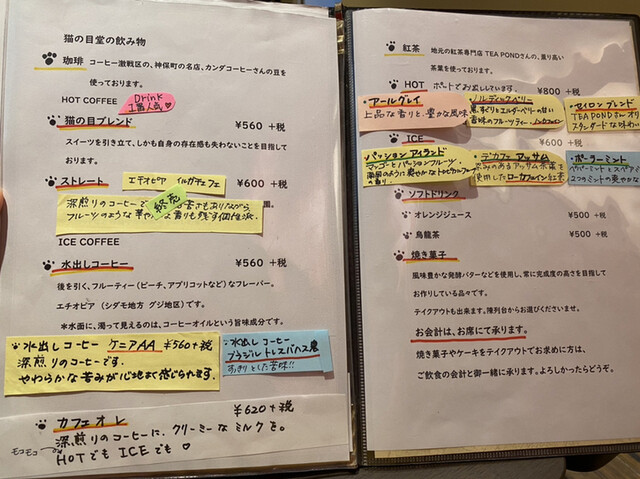 猫の目堂の飲み物
珈琲 コーヒー激戦区の、神保町の名店、カンダコーヒーさんの豆を
使っております。
HOT COFFEE
Drink
1番人気♡
猫の目ブレンド ¥560 +税
スイーツを引き立て、しかも自身の存在感も失わないことを目指して
おります。
ストレート エチオピア イルガチェフェ ¥600 +税
深煎りのコーヒーで
フルーツのような
終売
ICE COFFEE
水出しコーヒー ¥560 +税
後を引く、フルーティー(ピーチ、アプリコットなど)なフレーバー。
エチオピア(シダモ地方 グジ地区)です。
*水面に、濁って見えるのは、コーヒーオイルという旨味成分です。
水出しコーヒー ケニアAA ¥560+税
深煎りのコーヒーです。
やわらかな苦みが心地よく感じられます。
水出しコーヒー
ブラジル
すっきりとした苦味!!
カフェオレ ¥620+税
深煎りのコーヒーに、クリーミーなミルクを。
モコモコ
HOTでもICEでも♡
紅茶 地元の紅茶専門店 TEA PONDさんの、薫り高い
茶葉を使っております。
HOT ポットでお出ししています。 ¥800 +税
アールグレイ
上品な香りと、豊かな風味
ノルディックベリー
セイロンブレンド
TEA PONDさんオリ
スタンダードな味わい
ICE ¥600 +税
パッションアイランド
マンゴーとパッションフルーツ、
デカフェ アッサム
使用したローカフェイン紅茶
ポーラーミント
ペパーミントとスペア
2つのミントの爽やかな
ソフトドリンク
オレンジジュース ¥500 +税
烏龍茶 ¥500 +税
焼き菓子
風味豊かな発酵バターなどを使用し、常に完成度の高さを目指して
お作りしている品々です。
テイクアウトも出来ます。陳列台からお選びくださいませ。
お会計は、お席にて承ります。
焼き菓子やケーキをテイクアウトでお求めに方は、
ご飲食の会計と御一緒に承ります。よろしかったらどうぞ。